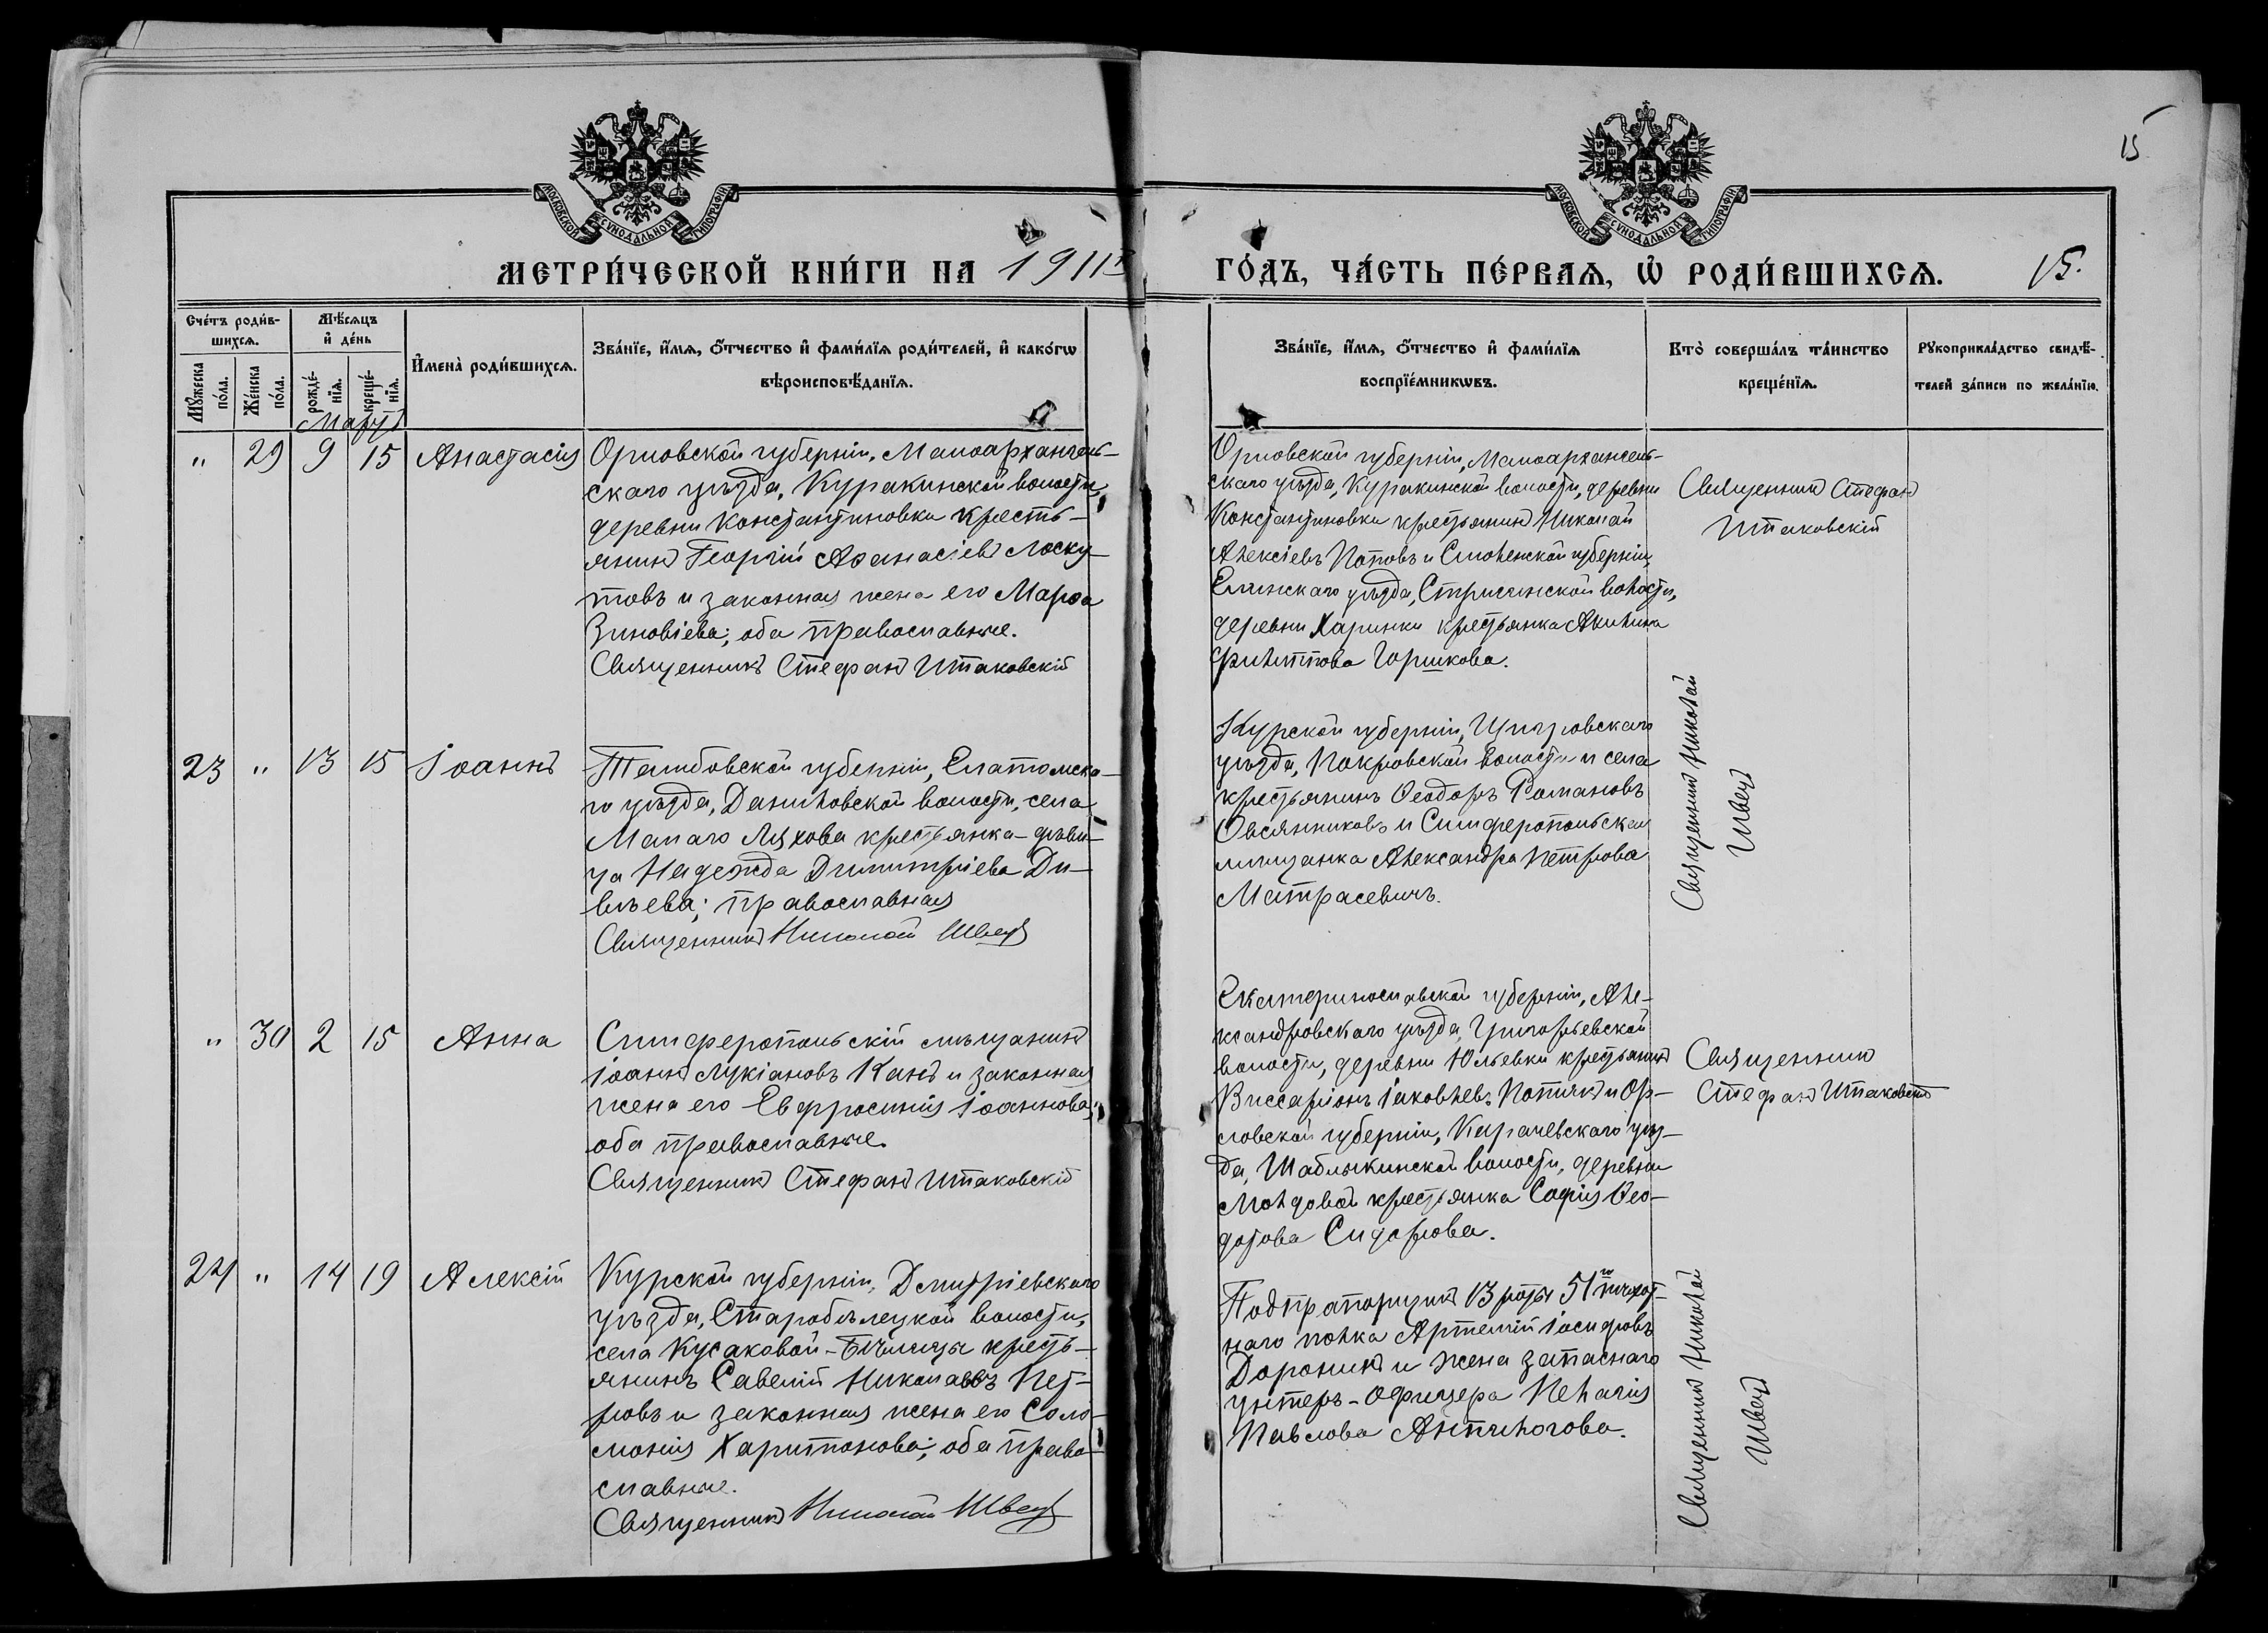 15
МОСКОВСКОЙ СУНОДАЛЬНОЙ ТИПОГРАФІИ
МОСКОВСКОЙ СУНОДАЛЬНОЙ ТИПОГРАФІИ
МЕТРИ́ЧЕСКОЙ КНИ́ГИ НА 1911й
ГО́ДЪ, ЧА́СТЬ ПЕ́РВАЯ, Ѡ РОДИ́ВШИХСЯ. 15.
Сче́тъ роди́в-
шихся.
Мѣ́сяцъ
и де́нь
Мꙋ́жеска по́ла.
Же́нска по́ла.
рожде́-нїя.
креще́-нїя.
И҆мена̀ роди́вшихся.
Зва́нїе, и҆́мя, ѻ҆́тчество и҆ фами́лїя роди́телей, и҆ како́гѡ
вѣроисповѣ́данїя.
Зва́нїе, и҆́мя, ѻ҆́тчество и҆ фами́лїя
воспрїе́мникѡвъ.
Кто̀ соверша́лъ та́инство
креще́нїя.
Рꙋкоприкла́дство свидѣ́-
телей за́писи по жела́нїю.
Мартъ
" 29 9 15 Анастасія
Орловской губерніи, Малоархангель-
скаго уѣзда, Куракинской волости,
деревни Константиновки кресть-
янинъ Георгій Аѳанасіевъ Лоску-
товъ и законная жена его Марѳа
Зиновіева; оба православные.
Священникъ Стефанъ Штаковскій
Орловской губерніи, Малоархангель-
скаго уѣзда, Куракинской волости, деревни
Константиновки крестьянинъ Николай
Алексіевъ Поповъ и Смоленской губерніи,
Ельнскаго уѣзда, Стригинской волости,
деревни Харинки крестьянка Акилина
Филиппова Горшкова.
Священникъ Стефанъ
Штаковскій
23 " 13 15 Іоаннъ
Тамбовской губерніи, Елатомска-
го уѣзда, Даниловской волости, села
Малаго Ляхова крестьянка-дѣви-
ца Надежда Димитріева Ди-
вѣева; православная
Священникъ Николай Швецъ
Курской губерніи, Щигровскаго
уѣзда, Покровской волости и села
крестьянинъ Ѳеодоръ Романовъ
Овсянниковъ и Симферопольская
мѣщанка Александра Петрова
Матрасевичъ.
Священникъ Николай
Швецъ
" 30 2 15 Анна
Симферопольскій мѣщанинъ
Іоаннъ Лукіановъ Канъ и законная
жена его Евфросинія Іоаннова;
оба православные.
Священникъ Стефанъ Штаковскій
Екатеринославской губерніи, Але-
ксандровскаго уѣзда, Григорьевской
волости, деревни Юльевки крестьянинъ
Виссаріонъ Іаковлевъ и Ор-
ловской губерніи, Карачевскаго уѣз-
да, Шаблыкинской волости, деревни
Молдовой крестьянка Софія Ѳео-
дотова Сидорова.
Священникъ
Стефанъ Штаковскій
24 " 14 19 Алексій
Курской губерніи, Дмитріевскаго
уѣзда, Старобѣлецкой волости,
села Кусаковой-Бѣлицы кресть-
янинъ Савелій Николаевъ Пет-
ровъ и законная жена его Соло-
монія Харитонова; оба право-
славные.
Священникъ Николай Швецъ
Подпрапорщикъ 13 роты 51го пѣхот-
наго полка Артемій Іосифовъ
Доронинъ и жена запаснаго
унтеръ-офицера Пелагія
Павлова Антилогова.
Священникъ Николай
Швецъ